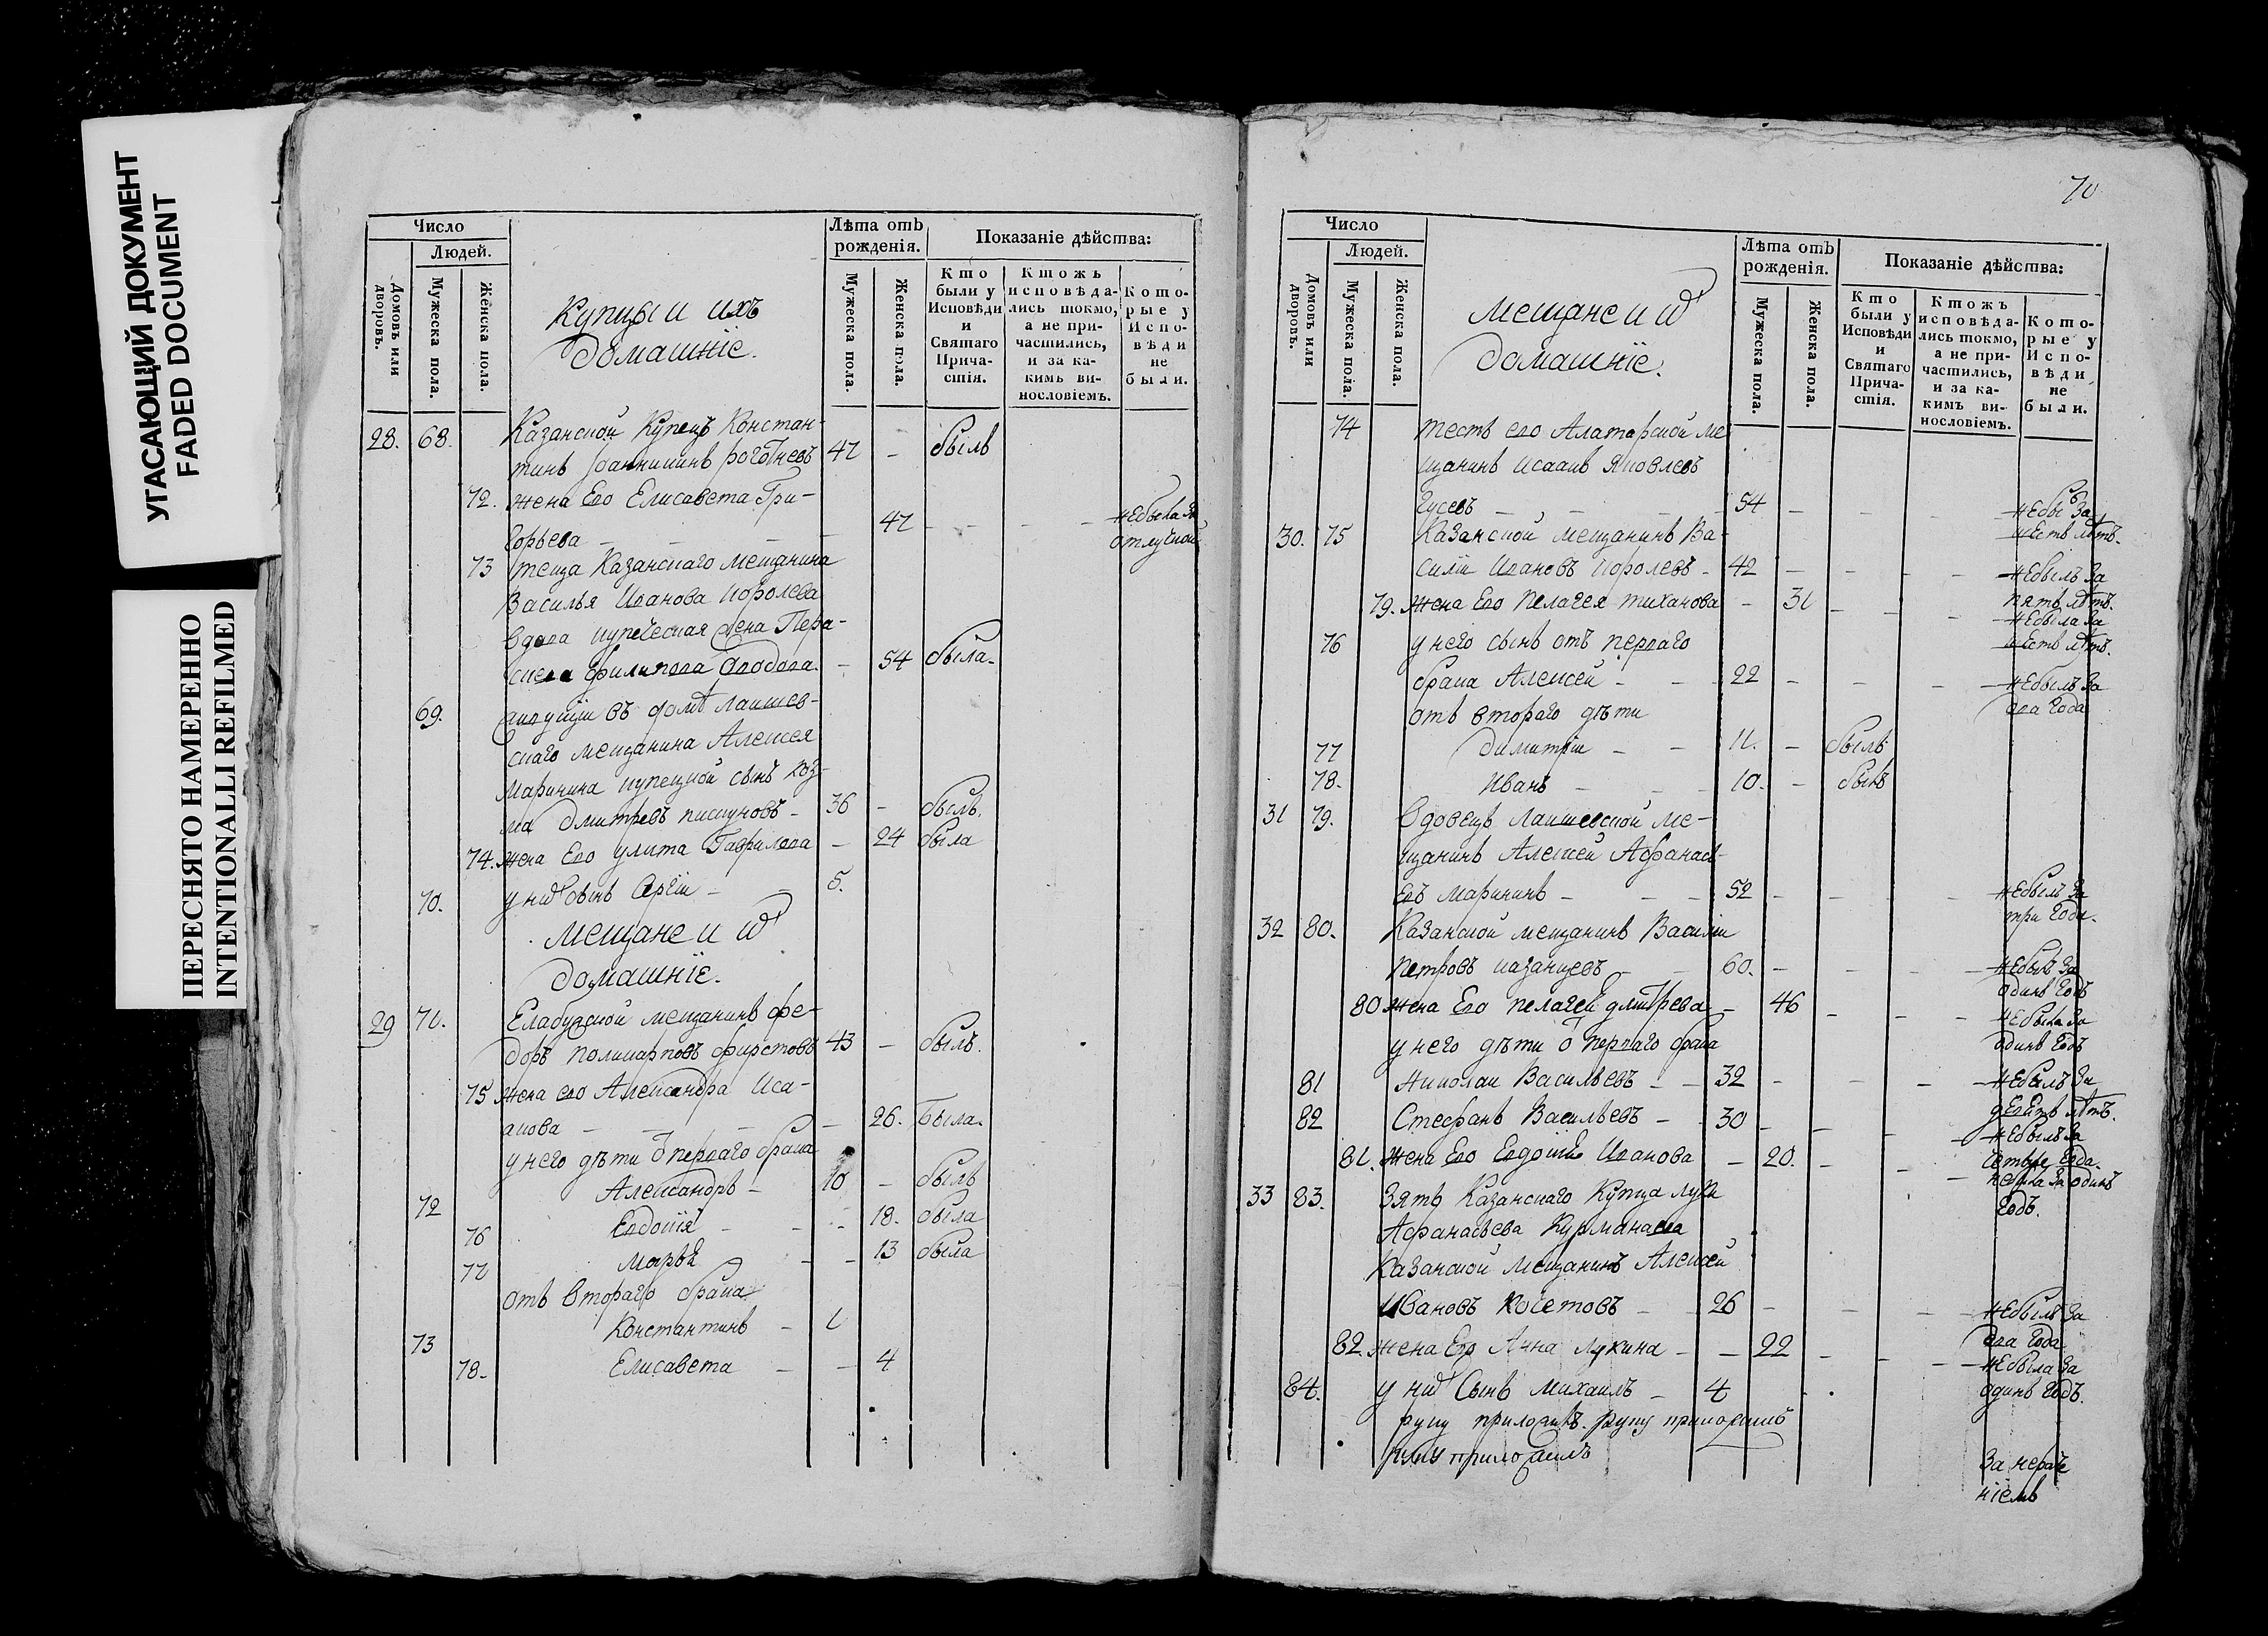 УГАСАЮЩИЙ ДОКУМЕНТ
FADED DOCUMENT
ПЕРЕСНЯТО НАМЕРЕННО
INTENTIONALLI REFILMED
Число
Людей.
Домовъ или дворовъ.
Мужеска пола.
Женска пола.
Купцы и ихъ
домашнїе.
Лѣта отъ рожденїя.
Мужеска пола.
Женска пола.
Показанїе дѣйства:
Кто были у Исповѣди и Святаго Причастїя.
Ктожъ исповѣдались токмо, а не причастились, и за какимъ винословїемъ.
Которые у Исповѣди не были.
28. 68. Казанской Купецъ Констан-
тинъ Іоанникинъ 47 - былъ
72. жена Его Елисавета Гри-
горьева - 47 - - - небыла за
отлучкой
73 теща Казанскаго мещанина
Василья Иванова Королева
вдова купеческая жена Пера-
скева Филипова - 54 была.
69. живущїи въ домѣ лаишев-
скаго мещанина Алексея
Маринина купецкой сынъ Коз-
ма Дмитревъ пискуновъ - 36 - былъ.
74. жена Его улита Гаврилова - 24 была
70. у них сынъ Сергїи - 5.
мещане и их
домашнїе.
29 71. Елабужской мещанинъ Фе-
доръ поликарповъ фирстовъ 43 - былъ.
75 жена его Александра Иса-
акова - 26. Была.
у него дѣти от перваго брака
72 Александръ - 10 - былъ
76 Евдокїя - 18. была
77 Марья - 13 была
отъ втораго брака
73 Константинъ - 1
78. Елисавета - - 4
70
Число
Людей.
Домовъ или дворовъ.
Мужеска пола.
Женска пола.
мещане и их
домашнїе.
Лѣта отъ рожденїя.
Мужеска пола.
Женска пола.
Показанїе дѣйства:
Кто были у Исповѣди и Святаго Причастїя.
Ктожъ исповѣдались токмо, а не причастились, и за какимъ винословїемъ.
Которые у Исповѣди не были.
74 тесть его Алатарской ме-
щанинъ Исаакъ Яковлевъ
Гусевъ - 54 - - - небы за
шесть лѣтъ.
30. 75 Казанской мещанинъ Ва-
силїи Ивановъ Королевъ - 42 - - - небылъ за
пять лѣтъ.
79. жена Его Пелагея тиханова - 31 - - - небыла за
шесть лѣтъ.
76 у него сынъ отъ перваго
брака Алексеи - 22 - - - небылъ за
два года
отъ втораго дѣти
77 Димитрїи - 11. - былъ
78. Иванъ - 10. - былъ
31 79. вдовецъ Лаишевской ме-
щанинъ Алексеи Афанась-
евъ Маринин - 52 - - - небылъ за
три года.
32 80. Казанской мещанинъ Василїи
Петровъ казанцевъ - 60. - - - небылъ за
одинъ годъ
80 жена Его пелагея дмитрева - 46 - - - небыла за
одинъ годъ
у него дѣти от перваго брака
81 Николаи Васильевъ - 32 - - - небылъ за
лѣтъ.
82 Стефанъ Васильевъ - 30 - - - небылъ за
четыре года.
81. жена Его Евдокия Иванова - 20. - - - небыла за одинъ
годъ.
33 83. Зять Казанскаго Купца луки
Афанасьева Курманаева
Казанской мещанинъ Алексеи
Ивановъ Кочетовъ - 26 - - - небылъ за
два года
82. жена Его Анна лукина - - 22 - - - небыла за
одинъ годъ.
84. у них Сынъ Михаилъ - 4
руку приложилъ. руку приложилъ
руку приложилъ
за нераче
нїемъ